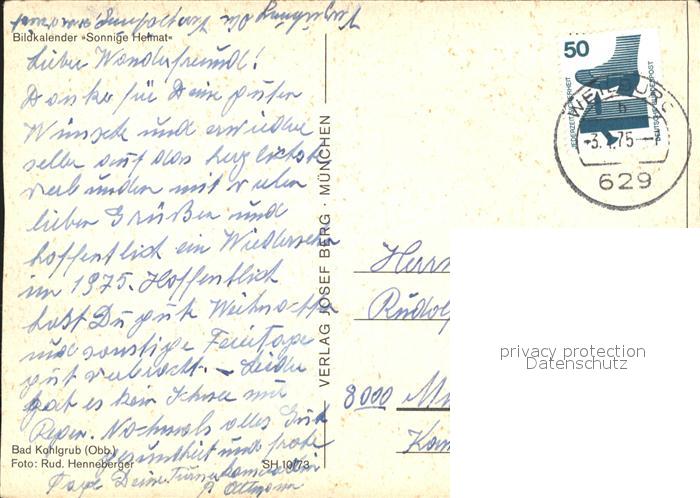 Bildkalender »Sonnige Heimat«
Lieber Wanderfreund!
Danke für Deine guten
Wünsche und erwiedere
selbe auf das herzlichste
verbunden mit vielen
lieben Grüßen und
hoffentlich ein Wiedersehen
im 1975. Hoffentlich
hast Du gute Weihnachten
und sonstige Feiertage
gut verbracht. – Leider
gab es kein Schnee nur
Regen. Nochmals alles Gute
Gesundheit und frohe
Tage Deine
Ottmann
Bad Kohlgrub (Obb.)
Foto: Rud. Henneberger
SH 10/73
VERLAG JOSEF BERG · MÜNCHEN
50
JEDERZEIT SICHERHEIT
DEUTSCHE BUNDESPOST
WEILBURG
-3.1.75
629
Herrn
Rudolf
8000 Mü
privacy protection
Datenschutz